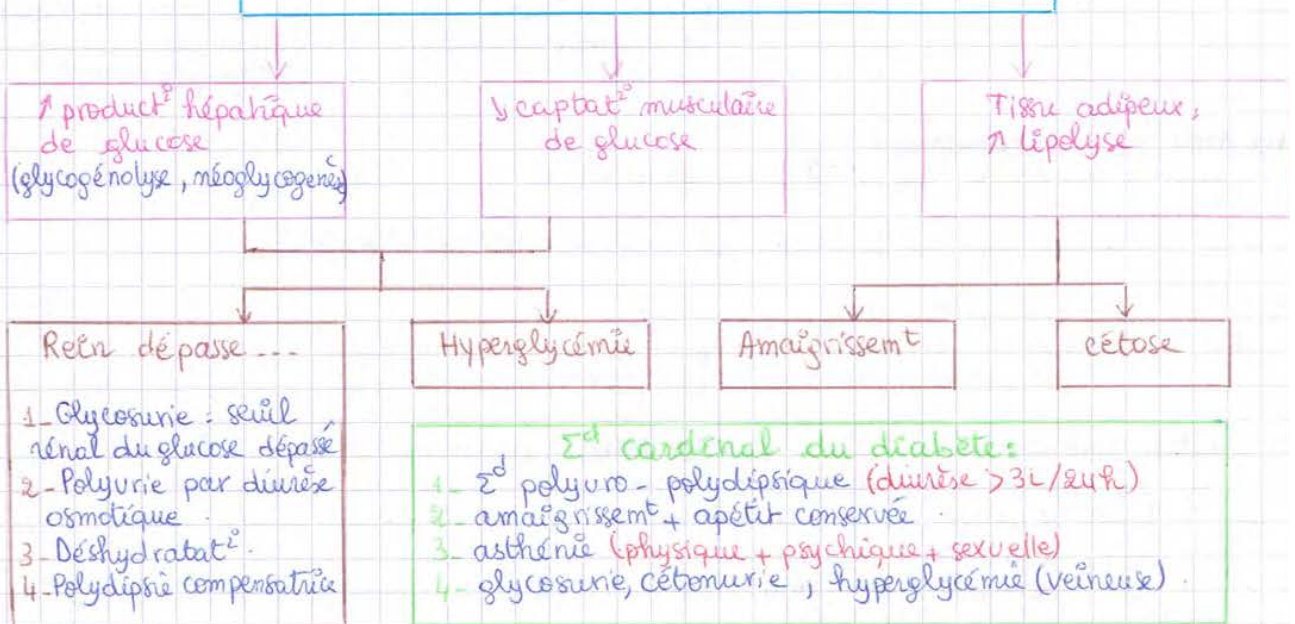 ↗ product° hépatique
de glucose
(glycogénolyse, néoglycogenèse)
↘ captat° musculaire
de glucose
Tissu adipeux,
↗ lipolyse
Rein dépasse ...
1_ Glycosurie : seuil
rénal du glucose dépassé
2_ Polyurie par diurèse
osmotique.
3_ Déshydratat°.
4_ Polydipsie compensatrice
Hyperglycémie
Amaigrissemt
cétose
Σd cardinal du diabète:
1_ Σd polyuro-polydipsique (diurèse >3L/24h)
2_ amaigrissemt + apétit conservée.
3_ asthénie (physique + psychique + sexuelle)
4_ glycosurie, cétonurie, hyperglycémie (veineuse).